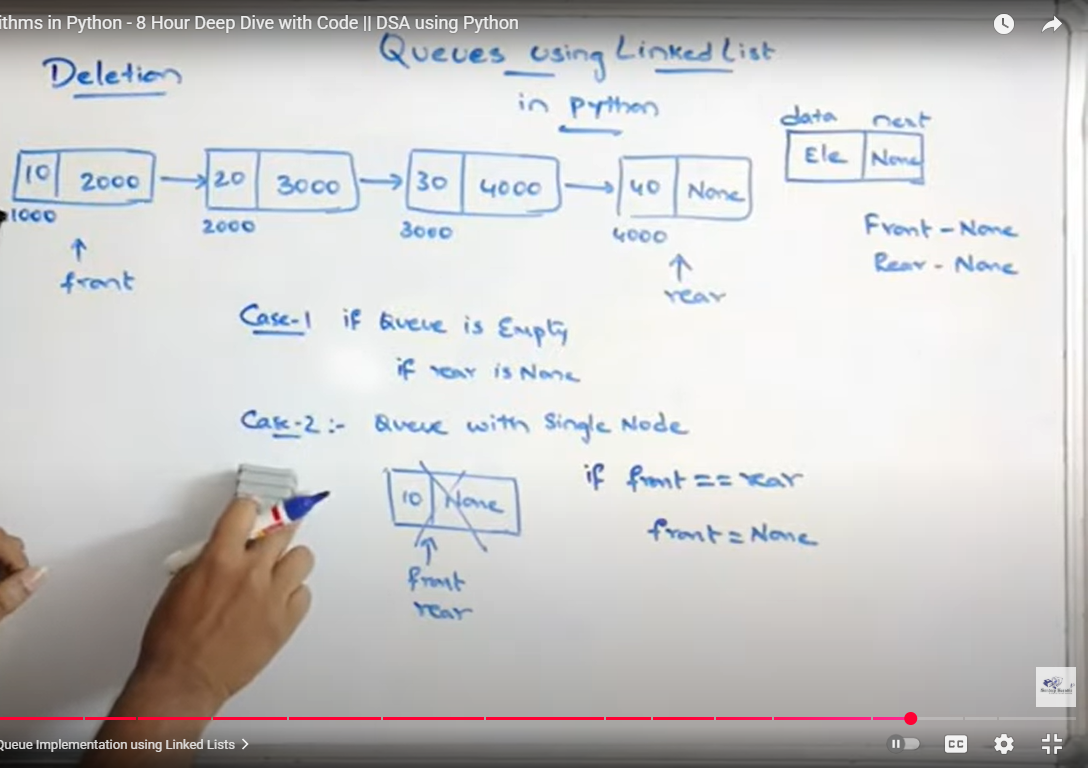 ithms in Python - 8 Hour Deep Dive with Code || DSA using Python
Deletion
Queues using Linked List
in python
data next
Ele None
10 2000 20 3000 30 4000 40 None
1000 2000 3000 4000
front
rear
Front - None
Rear - None
Case-1 if Queue is Empty
if rear is None
Case-2:- Queue with Single Node
10 None
if front == rear
front = None
front
rear
Queue Implementation using Linked Lists
CC